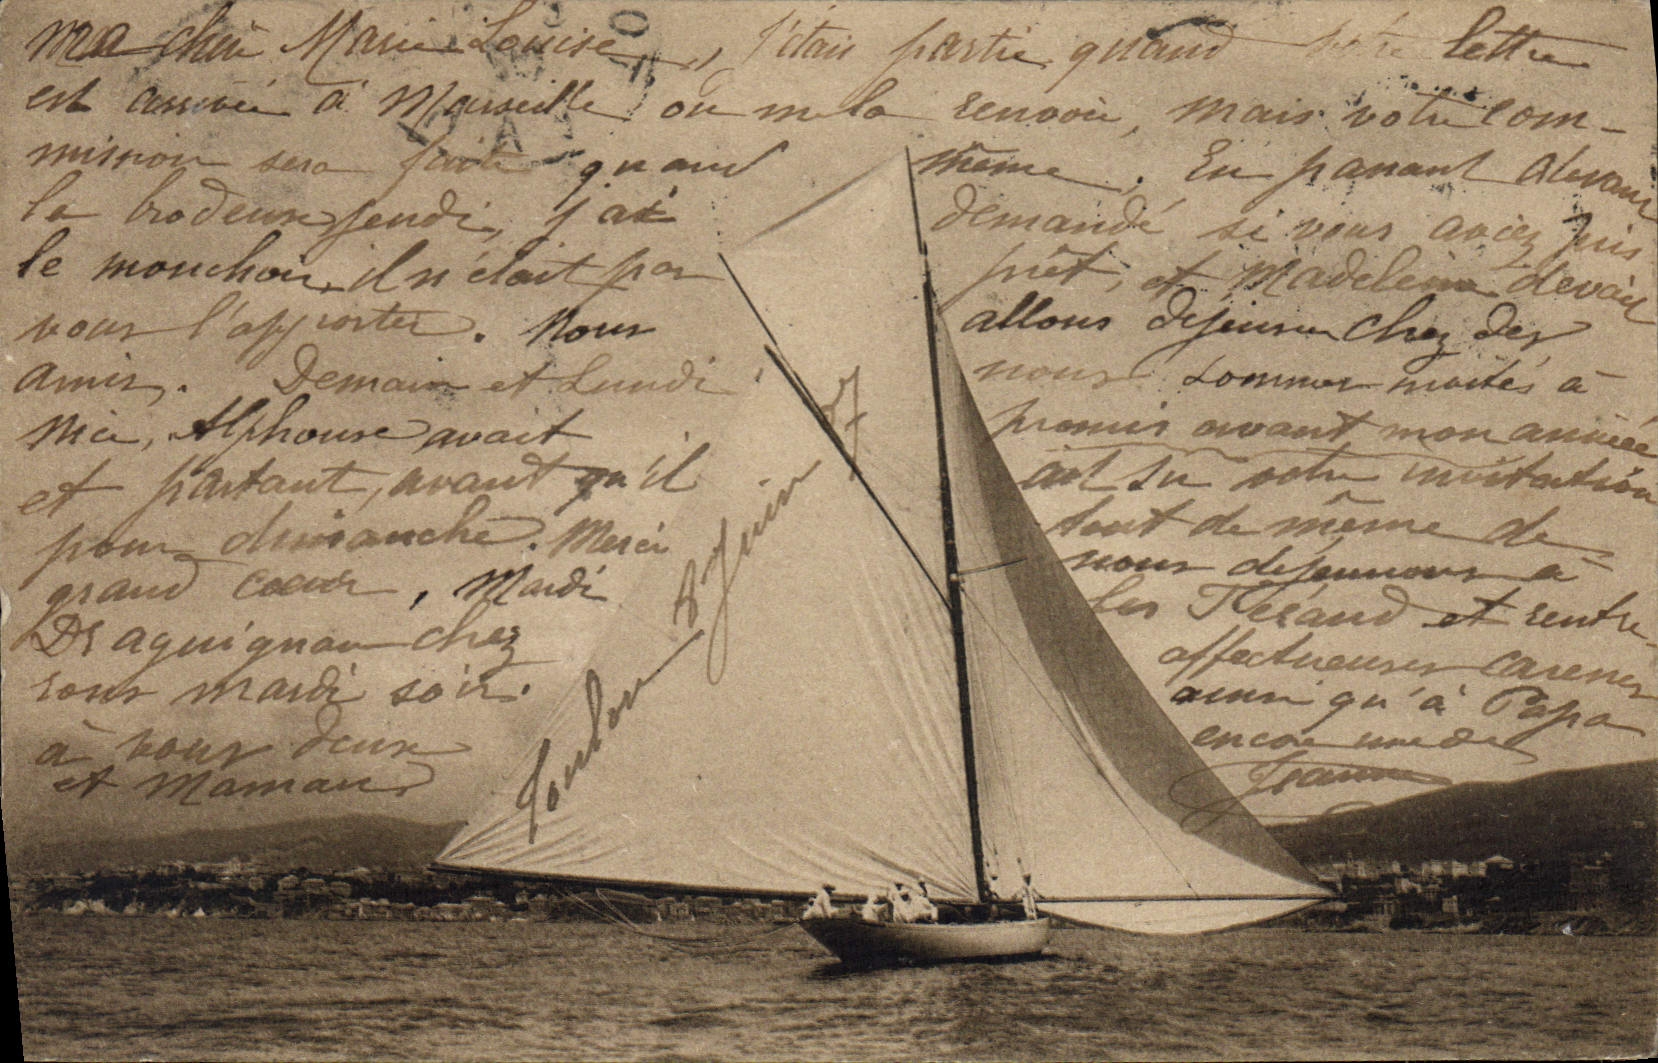 Ma chère Marie Louise, j'étais partie quand votre lettre
est arrivée à Marseille on me la renvoie, mais votre com-
mission sera faite quand même. En passant devant
la brodeuse jeudi, j'ai demandé si vous aviez pris
le mouchoir, il n'était pas prêt, et Madeleine devait
vous l'apporter. Nous allons déjeuner chez des
amis. Demain et Lundi nous sommes invités à
Nice, Alphonse avait promis avant mon arrivée
et partant, avant qu'il ait su votre invitation
pour dimanche. Merci tout de même de
grand coeur, Mardi nous déjeunons à
Draguignan chez les et rentre-
rons mardi soir. affectueuses caresses
à vous deux ainsi qu'à Papa
et Maman encore une de
Jeanne
Toulon 8 Juin 07